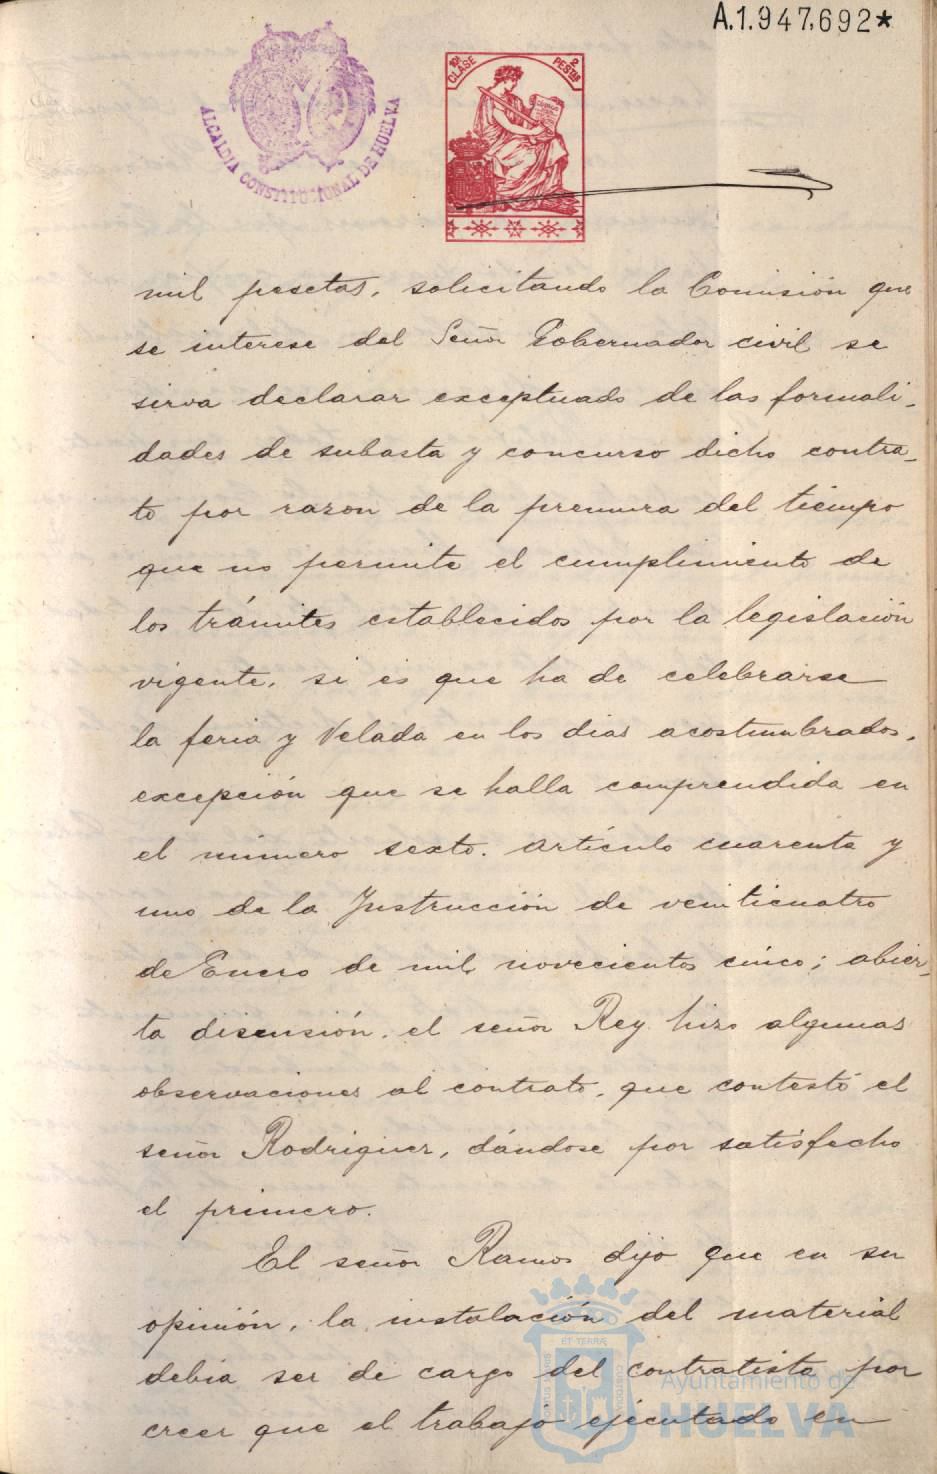 A.1.947,692*
ALCALDIA CONSTITUCIONAL DE HUELVA
10ª CLASE
2 PESTAS
mil pesetas, solicitando la Comisión que
se interese del Señor Gobernador civil se
sirva declarar exceptuado de las formali-
dades de subasta y concurso dicho contra-
to por razon de la premura del tiempo
que no permite el cumplimiento de
los trámites establecidos por la legislación
vigente, si es que ha de celebrarse
la feria y Velada en los dias acostumbrados,
excepción que se halla comprendida en
el número sexto. artículo cuarenta y
uno de la Instrucción de veinticuatro
de Enero de mil novecientos cinco; abier-
ta discusión, el señor Rey hizo algunas
observaciones al contrato, que contestó el
señor Rodriguez, dándose por satisfecho
el primero.
El señor Ramos dijo que en su
opinión, la instalación del material
debia ser de cargo del contratista por
creer que el trabajo ejecutado en
Ayuntamiento de
HUELVA